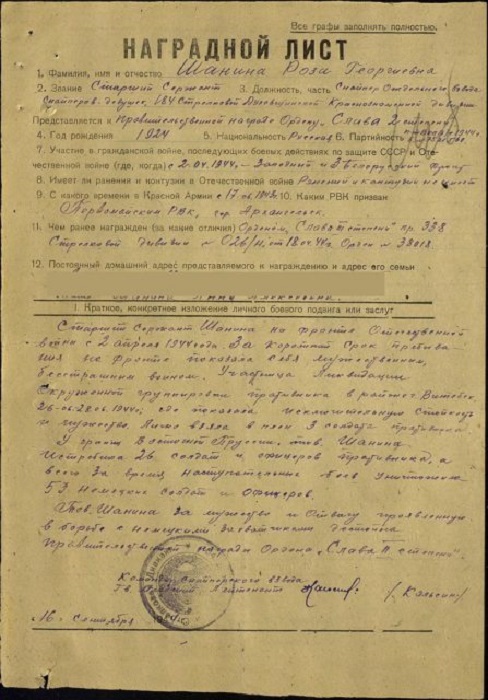 Все графы заполнять полностью.
НАГРАДНОЙ ЛИСТ
1. Фамилия, имя и отчество Шанина Роза Георгиевна
2. Звание Старший Сержант 3. Должность, часть Снайпер Отдельного взвода
снайперов девушек 184 Стрелковой Духовщинской Краснознаменной дивизии
Представляется к Правительственной награде Ордену „Слава 2 степени
4. Год рождения 1924 5. Национальность Русская 6. Партийность
7. Участие в гражданской войне, последующих боевых действиях по защите СССР и Оте-
чественной войне (где, когда) с 2.04.1944г. Западный и 3 Белорусский фронт
8. Имеет ли ранения и контузии в Отечественной войне Ранений и контузий не имеет
9. С какого времени в Красной Армии с 1943г. 10. Каким РВК призван
Первомайским РВК, гор. Архангельск.
11. Чем ранее награжден (за какие отличия) Орденом „Слава III степени" пр. 338
Стрелковой дивизии № 026/н от 18
12. Постоянный домашний адрес представляемого к награждению и адрес его семьи
Анна Алексеевна.
I. Краткое, конкретное изложение личного боевого подвига или заслуг
Старший Сержант Шанина на фронте Отечественной
войны с 2 апреля 1944 года. За короткий срок пребыва
ния на фронте показала себя мужественным,
бесстрашным воином. Участница ликвидации
окруженной группировки противника в районе г. Витебск
26-28.06.1944г., где показала исключительную стойкость
и мужество. Лично взяла в плен 3 солдат противника.
У границ Восточной Пруссии, тов. Шанина
истребила 26 солдат и офицеров противника, а
всего за время наступательных боев уничтожила
53 немецких солдат и офицеров.
Тов. Шанина за мужество и отвагу проявленную
в борьбе с немецкими захватчиками достойна
правительственной награды Ордена „Слава II степени".
Командир снайперского взвода
Гв. Лейтенант
16 Сентября